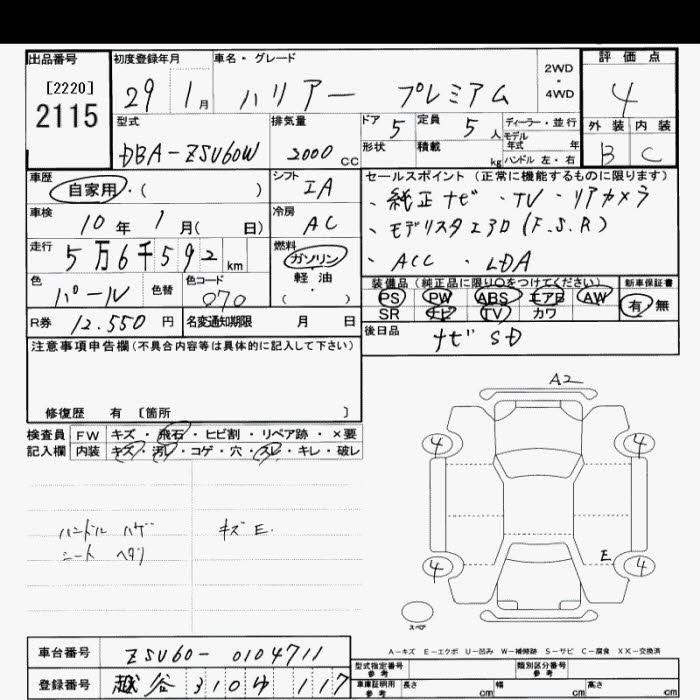 出品番号
[2220]
2115
初度登録年月
29 1月
車名・グレード
ハリアー プレミアム
2WD
・
4WD
評価点
4
外装 内装
B C
型式
DBA-ZSU60W
排気量
2000 cc
ドア 5
定員 5 人
ディーラー・並行
モデル
年式 年
形状
積載 kg
ハンドル 左・右
車歴
自家用・( )
シフト
IA
車検
10年 1月( 日)
冷房
AC
走行
5万6千592 km
燃料
ガソリン
軽油
( )
色
パール
色替
色コード
070
R券 12,550 円
名変通知期限 月 日
セールスポイント (正常に機能するものに限ります)
、純正ナビ ・TV ・リアカメラ
、モデリスタエアロ(F.S.R)
、ACC ・LDA
装備品 (純正品に限り○をつけてください)
新車保証書
PS PW ABS エアB AW
SR ナビ TV カワ
有 無
後日品
ナビSD
注意事項申告欄 (不具合内容等は具体的に記入して下さい)
修復歴 有 〔箇所 〕
検査員 FW キズ・飛石・ヒビ割・リペア跡・×要
記入欄 内装 キズ・汚レ・コゲ・穴・スレ・キレ・破レ
ハンドル ハゲ
シート ヘタリ
キズE.
A2
4 4
E
4 4
スペア
A-キズ E-エクボ U-凹み W-補修跡 S-サビ C-腐食 XX-交換済
車台番号 ZSU60-0104711
登録番号 越谷 310ゆ 117
型式指定番号
参考
類別区分番号
参考
車庫証明用
参考
長さ cm 幅 cm 高さ cm